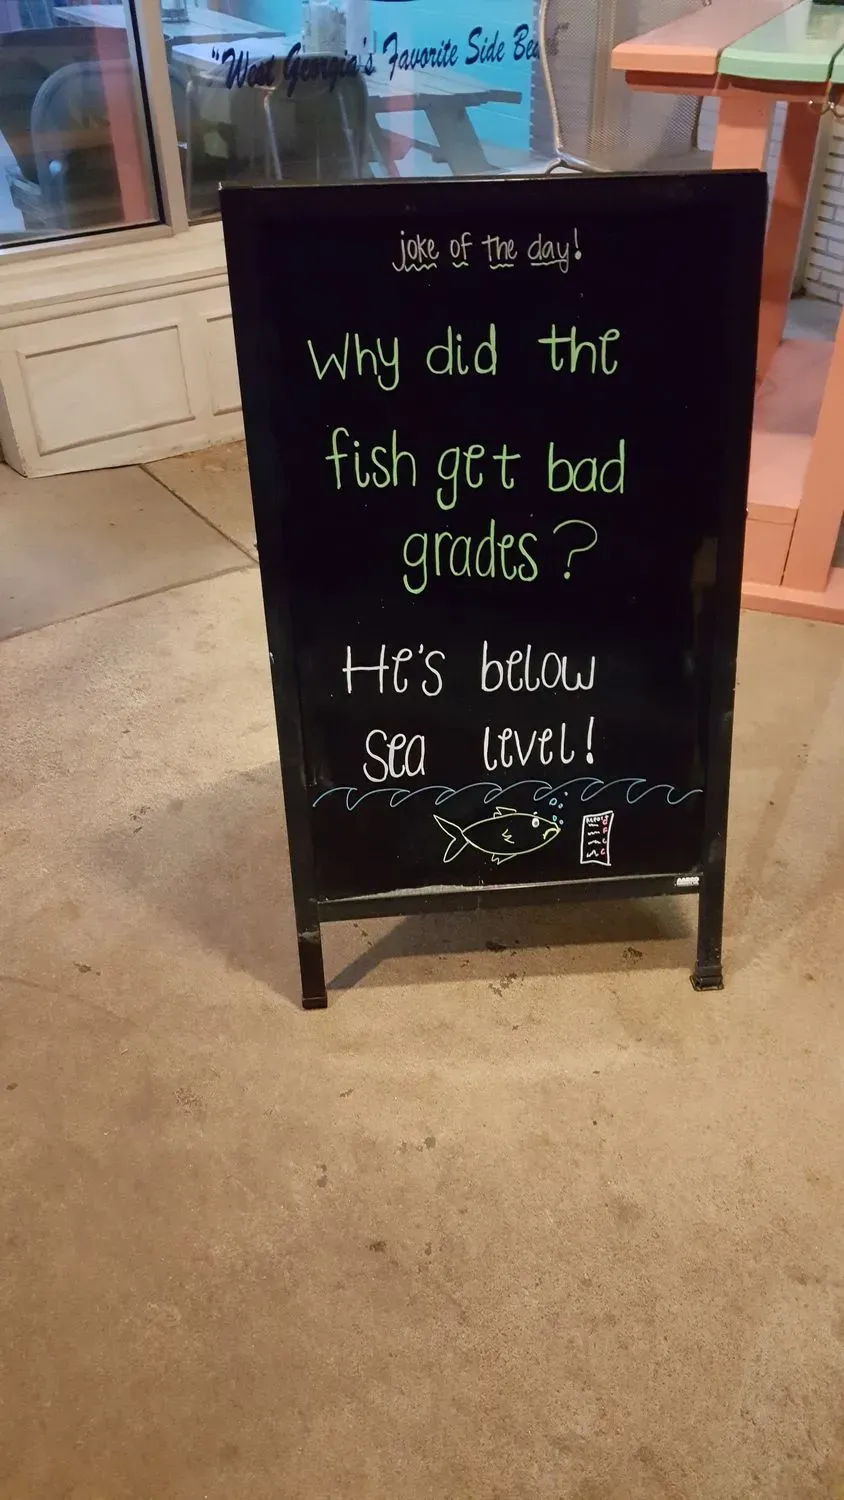 "West Georgia's Favorite Side
joke of the day!
Why did the
fish get bad
grades?
He's below
sea level!